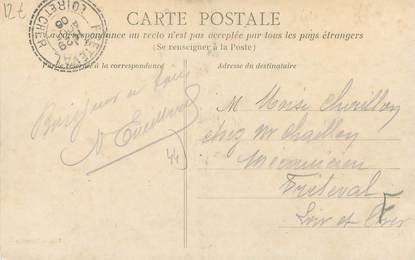 12t
CARTE POSTALE
La correspondance au recto n'est pas acceptée par tous les pays étrangers
(Se renseigner à la Poste)
Partie réservée à la correspondance
Adresse du destinataire
LOIR-ET-CHER
Bonjour à tous
44
M Moise
chez Mr Chaillon
Mécanicien
Fréteval
Loir et Cher